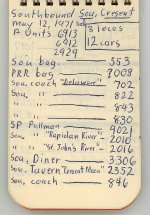 Southbound Sou. Crescent
May 12, 1971
A Units 6913 3 locos
6912 12 cars
2929
Sou bag. 553
PRR bag. 7008
Sou, coach "Delaware" 702
Sou, " " 822
Sou, " " 843
Sou, " " 830
SR Pullman 9021
Sou " "Rapidan River" - 2010
Sou " "St. John's River" - 2016
Sou, Diner - 3306
Sou, Tavern "Crescent Moon" 2352
Sou, coach - 846